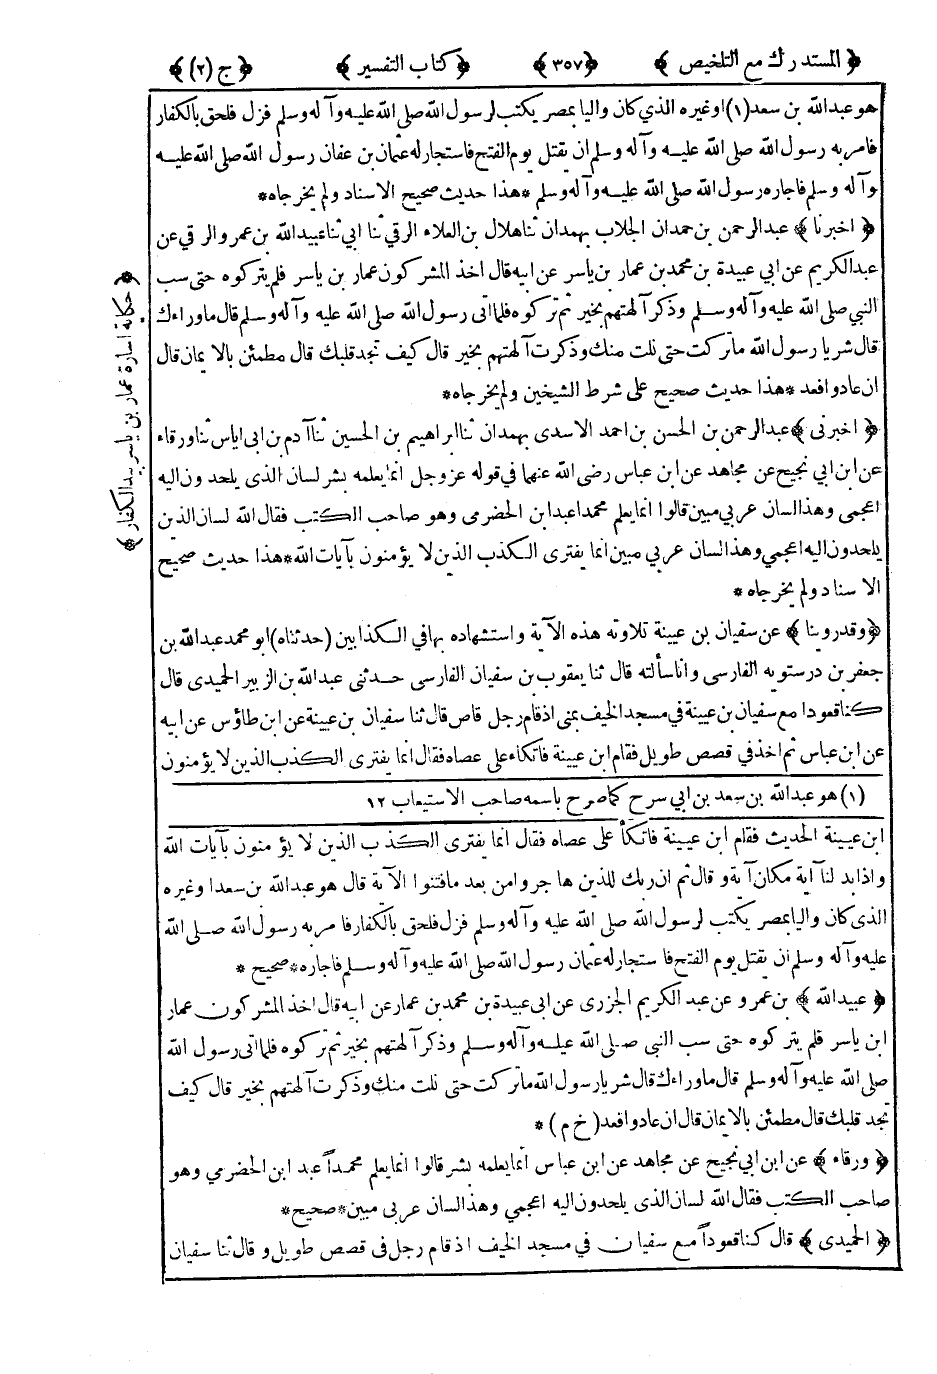 ﴿ المستدرك مع التلخيص ﴾ ﴿٣٥٧﴾ ﴿ كتاب التفسير ﴾ ﴿ ج (٢) ﴾
هو عبدالله بن سعد (١) اوغيره الذي كان واليا بمصر يكتب لرسول الله صلى الله عليه وآله وسلم فزل فلحق بالكفار
فامر به رسول الله صلى الله عليه وآله وسلم ان يقتل يوم الفتح فاستجار له عثمان بن عفان رسول الله صلى الله عليه
وآله وسلم فاجاره رسول الله صلى الله عليه وآله وسلم *هذا حديث صحيح الاسناد ولم يخرجاه*
﴿ اخبرنا ﴾ عبدالرحمن بن حمدان الجلاب بهمدان ثنا هلال بن العلاء الرقي ثنا ابي ثنا عبيدالله بن عمرو الرقي عن
عبدالكريم عن ابي عبيدة بن محمد بن عمار بن ياسر عن ابيه قال اخذ المشركون عمار بن ياسر فلم يتركوه حتى سب
النبي صلى الله عليه وآله وسلم وذكر آلهتهم بخير ثم تركوه فلما اتى رسول الله صلى الله عليه وآله وسلم قال ما وراءك
قال شر يا رسول الله ما تركت حتى نلت منك وذكرت آلهتهم بخير قال كيف تجد قلبك قال مطمئن بالايمان قال
ان عادوا فعد *هذا حديث صحيح على شرط الشيخين ولم يخرجاه*
﴿ اخبرني ﴾ عبدالرحمن بن الحسن بن احمد الاسدى بهمدان ثنا ابراهيم بن الحسين ثنا آدم بن ابى اياس ثنا ورقاء
عن ابن ابي نجيح عن مجاهد عن ابن عباس رضى الله عنهما في قوله عز وجل انما يعلمه بشر لسان الذى يلحدون اليه
اعجمى وهذا لسان عربي مبين قالوا انما يعلم محمدا عبد ابن الحضرمى وهو صاحب الكتب فقال الله لسان الذين
يلحدون اليه اعجمي وهذا لسان عربي مبين انما يفترى الكذب الذين لا يؤمنون بآيات الله*هذا حديث صحيح
الاسناد ولم يخرجاه *
﴿ وقد روينا ﴾ عن سفيان بن عيينة تلاوته هذه الآية واستشهاده بها في الكذابين (حدثناه) ابو محمد عبدالله بن
جعفر بن درستويه الفارسى وانا سألته قال ثنا يعقوب بن سفيان الفارسى حدثنى عبدالله بن الزبير الحميدى قال
كنا قعودا مع سفيان بن عيينة في مسجد الخيف بمنى اذ قام رجل قاص قال ثنا سفيان بن عيينة عن ابن طاؤس عن ابيه
عن ابن عباس ثم اخذ في قصص طويل فقام ابن عيينة فاتكاء على عصاه فقال انما يفترى الكذب الذين لا يؤمنون
(١) هو عبدالله بن سعد بن ابي سرح كما صرح باسمه صاحب الاستيعاب ١٢
ابن عيينة الحديث فقام ابن عيينة فاتكأ على عصاه فقال انما يفترى الكذب الذين لا يؤمنون بآيات الله
واذا بدلنا آية مكان آية و قال ثم ان ربك للذين هاجروا من بعد ما فتنوا الآية قال هو عبدالله بن سعد او غيره
الذى كان واليا بمصر يكتب لرسول الله صلى الله عليه وآله وسلم فزل فلحق بالكفار فامر به رسول الله صلى الله
عليه وآله وسلم ان يقتل يوم الفتح فاستجار له عثمان رسول الله صلى الله عليه وآله وسلم فاجاره *صحيح *
﴿ عبيدالله ﴾ بن عمرو عن عبد الكريم الجزرى عن ابى عبيدة بن محمد بن عمار عن ابيه قال اخذ المشركون عمار
ابن ياسر فلم يتركوه حتى سب النبي صلى الله عليه وآله وسلم وذكر آلهتهم بخير ثم تركوه فلما اتى رسول الله
صلى الله عليه وآله وسلم قال ما وراءك قال شر يارسول الله ما تركت حتى نلت منك وذكرت آلهتهم بخير قال كيف
تجد قلبك قال مطمئن بالايمان قال ان عادوا فعد (خ م) *
﴿ ورقاء ﴾ عن ابن ابي نجيح عن مجاهد عن ابن عباس انما يعلمه بشر قالوا انما يعلم محمداً عبد ابن الحضرمي وهو
صاحب الكتب فقال الله لسان الذى يلحدون اليه اعجمي وهذا لسان عربى مبين*صحيح*
﴿ الحميدى ﴾ قال كنا قعوداً مع سفيان في مسجد الخيف اذ قام رجل فى قصص طويل و قال ثنا سفيان
﴿ حكاية اسارة عمار بن ياسر بيد الكفار ﴾